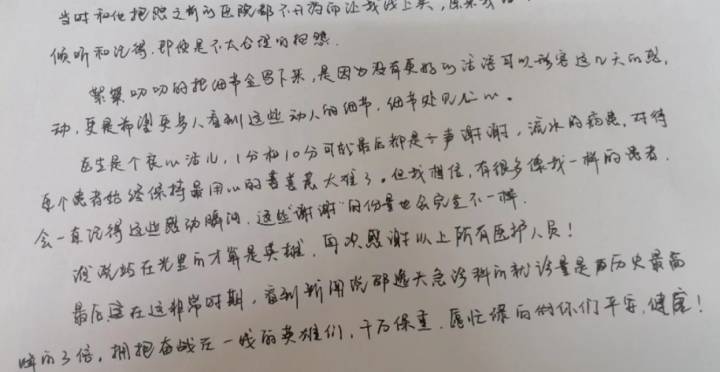 当时和他抱怨之前的医院都不开药而让我线上买,原来我
倾听和记得,即使是不太合理的抱怨.
絮絮叨叨的把细节全写下来,是因为没有更好的活活可以形容这几天的感
动,更是希望更多人看到这些动人的细节,细节处见仁心。
医生是个良心活儿,1分和10分可能最后都是一声谢谢,流水的病患,对待
每个患者始终保持最用心的善意是太难了。但我相信,有很多像我一样的患者,
会一直记得这些感动瞬间.这些“谢谢”的份量也会完全不一样.
谁说站在光里的才算是英雄,再次感谢以上所有医护人员!
最后在这非常时期,看到新闻说邵逸夫急诊科的就诊量是历史最高
峰的3倍,拥抱奋战在一线的英雄们,千万保重.愿忙碌的你们平安,健康!